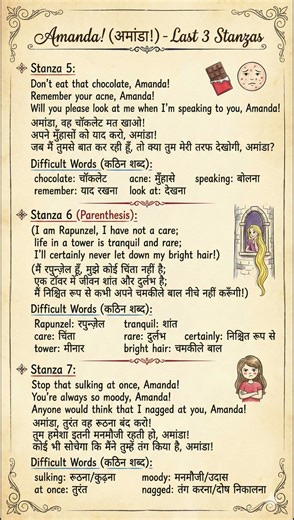 Amanda! (अमांडा!) - Last 3 Stanzas
Stanza 5:
Don't eat that chocolate, Amanda!
Remember your acne, Amanda!
Will you please look at me when I'm speaking to you, Amanda!
अमांडा, वह चॉकलेट मत खाओ!
अपने मुँहासों को याद करो, अमांडा!
जब मैं तुमसे बात कर रही हूँ, तो क्या तुम मेरी तरफ देखोगी, अमांडा?
Difficult Words (कठिन शब्द):
chocolate: चॉकलेट acne: मुँहासे speaking: बोलना
remember: याद रखना look at: देखना
Stanza 6 (Parenthesis):
(I am Rapunzel, I have not a care;
life in a tower is tranquil and rare;
I'll certainly never let down my bright hair!)
(मैं रपुन्ज़ेल हूँ, मुझे कोई चिंता नहीं है;
एक टॉवर में जीवन शांत और दुर्लभ है;
मैं निश्चित रूप से कभी अपने चमकीले बाल नीचे नहीं करूँगी!)
Difficult Words (कठिन शब्द):
Rapunzel: रपुन्ज़ेल tranquil: शांत
care: चिंता rare: दुर्लभ certainly: निश्चित रूप से
tower: मीनार bright hair: चमकीले बाल
Stanza 7:
Stop that sulking at once, Amanda!
You're always so moody, Amanda!
Anyone would think that I nagged at you, Amanda!
अमांडा, तुरंत वह रूठना बंद करो!
तुम हमेशा इतनी मनमौजी रहती हो, अमांडा!
कोई भी सोचेगा कि मैंने तुम्हें तंग किया है, अमांडा!
Difficult Words (कठिन शब्द):
sulking: रूठना/कुढ़ना moody: मनमौजी/उदास
at once: तुरंत nagged: तंग करना/दोष निकालना